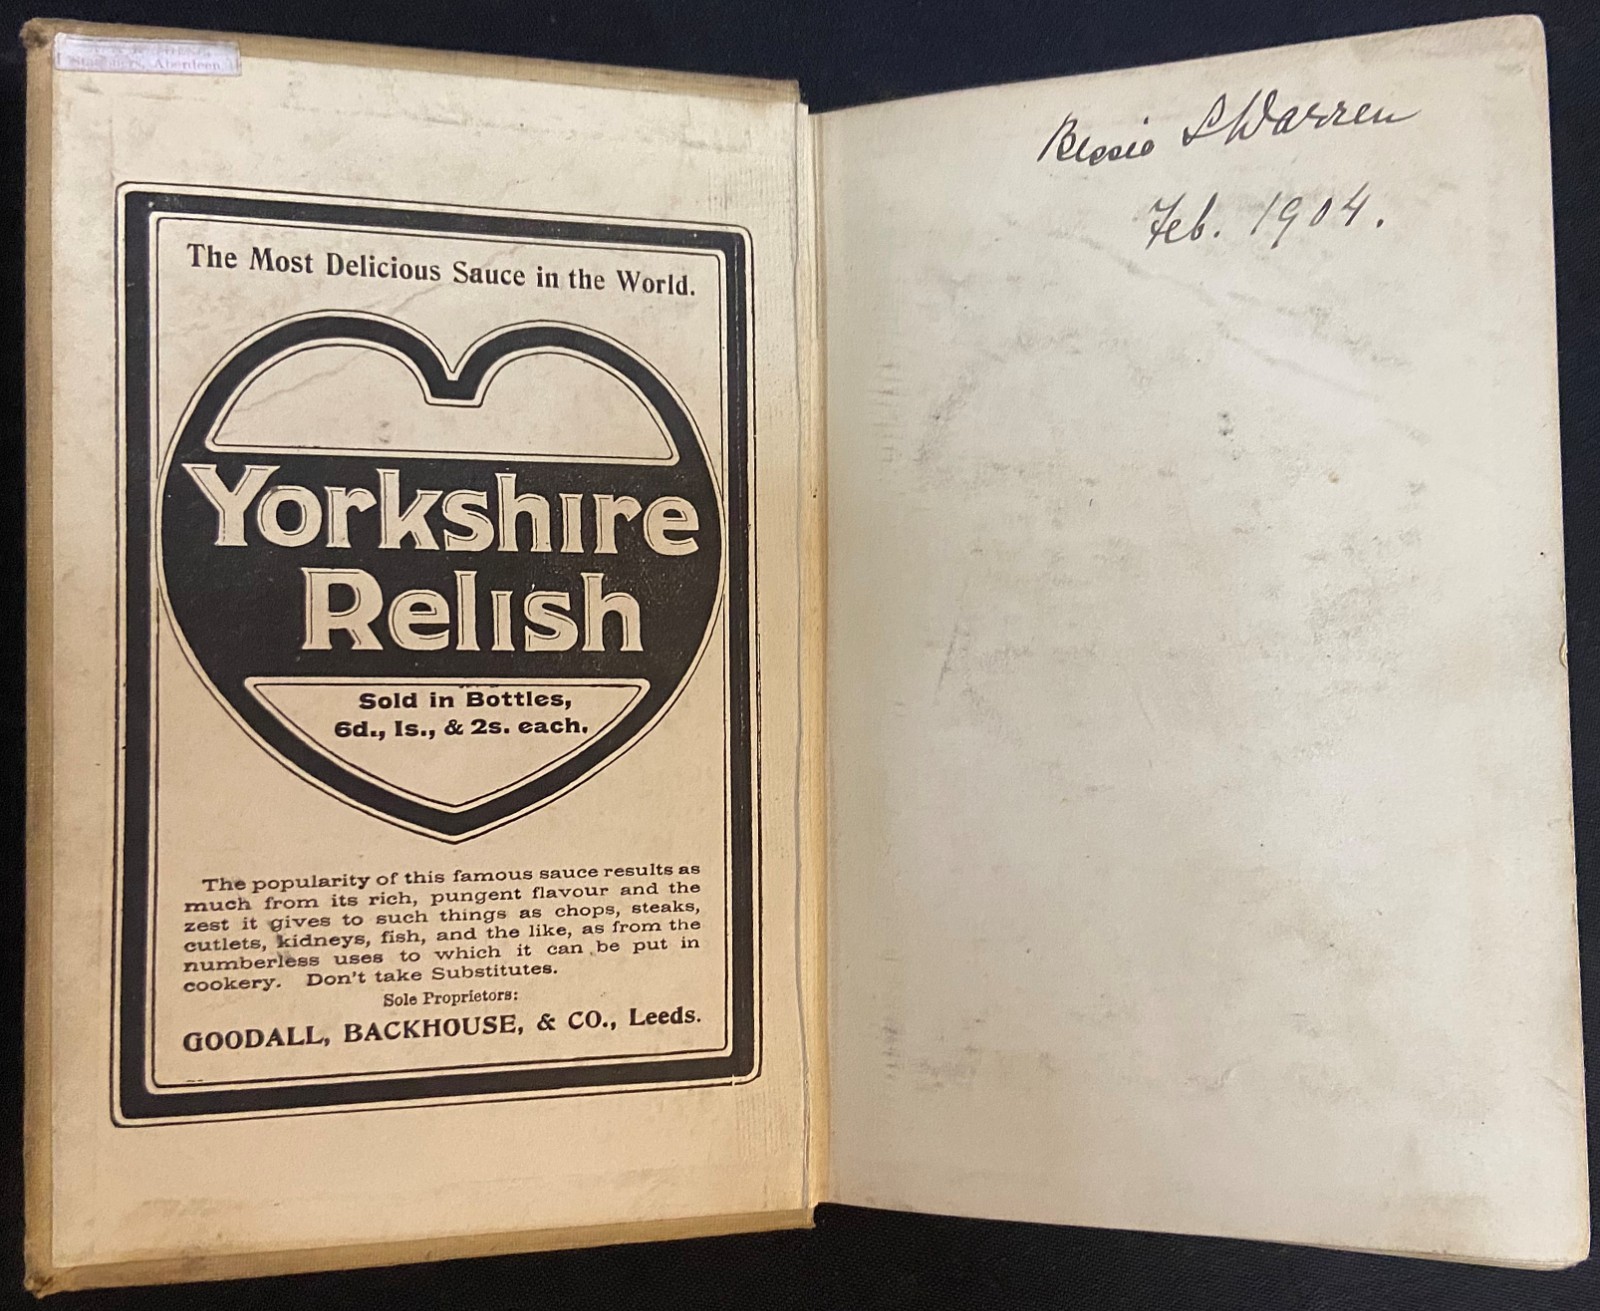 Stationers, Aberdeen.
The Most Delicious Sauce in the World.
Yorkshire
Relish
Sold in Bottles,
6d., 1s., & 2s. each.
The popularity of this famous sauce results as
much from its rich, pungent flavour and the
zest it gives to such things as chops, steaks,
cutlets, kidneys, fish, and the like, as from the
numberless uses to which it can be put in
cookery. Don't take Substitutes.
Sole Proprietors:
GOODALL, BACKHOUSE, & CO., Leeds.
Bessie L Warren
Feb. 1904.